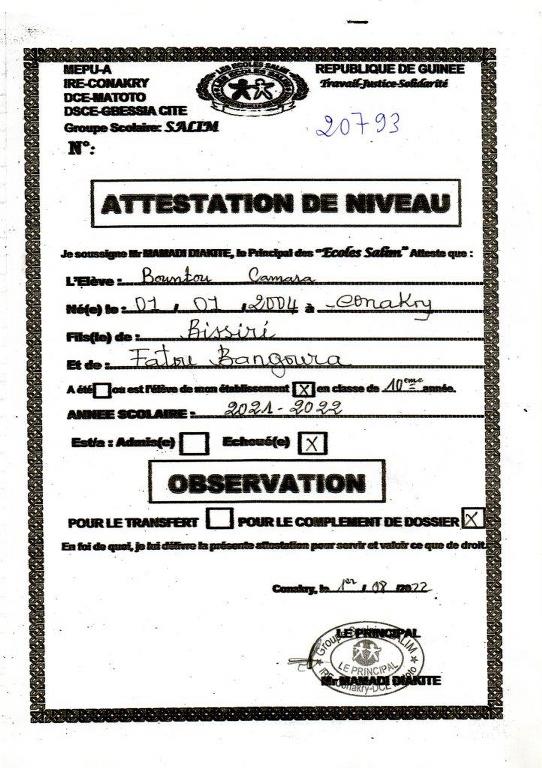 MEPU-A
IRE-CONAKRY
DCE-MATOTO
DSCE-GBESSIA CITE
Groupe Scolaire: SALIM
N°:
LES ECOLES SALIM
REPUBLIQUE DE GUINEE
Travail-Justice-Solidarité
20793
ATTESTATION DE NIVEAU
Je soussigne Mr MAMADI DIAKITE, le Principal des "Ecoles Salim" Atteste que :
L'Elève : Bountou Camara
Né(e) le : 01 / 01 / 2004 à Conakry
Fils(le) de : Bissiri
Et de : Fatou Bangoura
A été ou est l'élève de mon établissement X en classe de 10eme année.
ANNEE SCOLAIRE : 2021-2022
Est/a : Admis(e) Echoué(e) X
OBSERVATION
POUR LE TRANSFERT POUR LE COMPLEMENT DE DOSSIER X
En foi de quoi, je lui délivre la présente attestation pour servir et valoir ce que de droit.
Conakry, le 1er / 08 /2022
LE PRINCIPAL
Groupe Scolaire SALIM
LE PRINCIPAL
IRE Conakry-DCE
Mr MAMADI DIAKITE